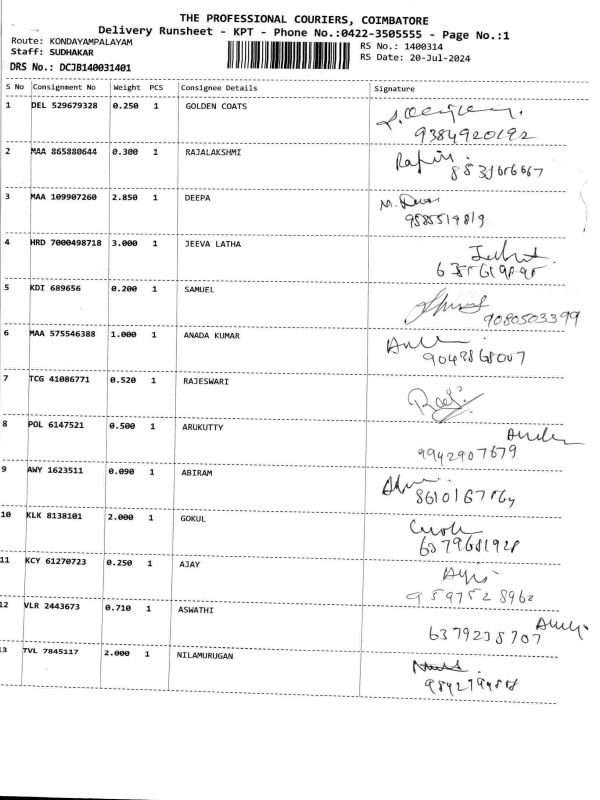 THE PROFESSIONAL COURIERS, COIMBATORE
Delivery Runsheet - KPT - Phone No.:0422-3505555 - Page No.:1
Route: KONDAYAMPALAYAM
Staff: SUDHAKAR
DRS No.: DCJB140031401
RS No.: 1400314
RS Date: 20-Jul-2024
S No Consignment No Weight PCS Consignee Details Signature
1 DEL 529679328 0.250 1 GOLDEN COATS
9384920192
2 MAA 865880644 0.300 1 RAJALAKSHMI
3 MAA 109907260 2.850 1 DEEPA
4 HRD 7000498718 3.000 1 JEEVA LATHA
5 KDI 689656 0.200 1 SAMUEL
9080503399
6 MAA 575546388 1.000 1 ANADA KUMAR
7 TCG 41086771 0.520 1 RAJESWARI
8 POL 6147521 0.500 1 ARUKUTTY
9942907679
9 AWY 1623511 0.090 1 ABIRAM
10 KLK 8138101 2.000 1 GOKUL
6379681928
11 KCY 61270723 0.250 1 AJAY
9597528962
12 VLR 2443673 0.710 1 ASWATHI
6379238707
13 TVL 7845117 2.000 1 NILAMURUGAN